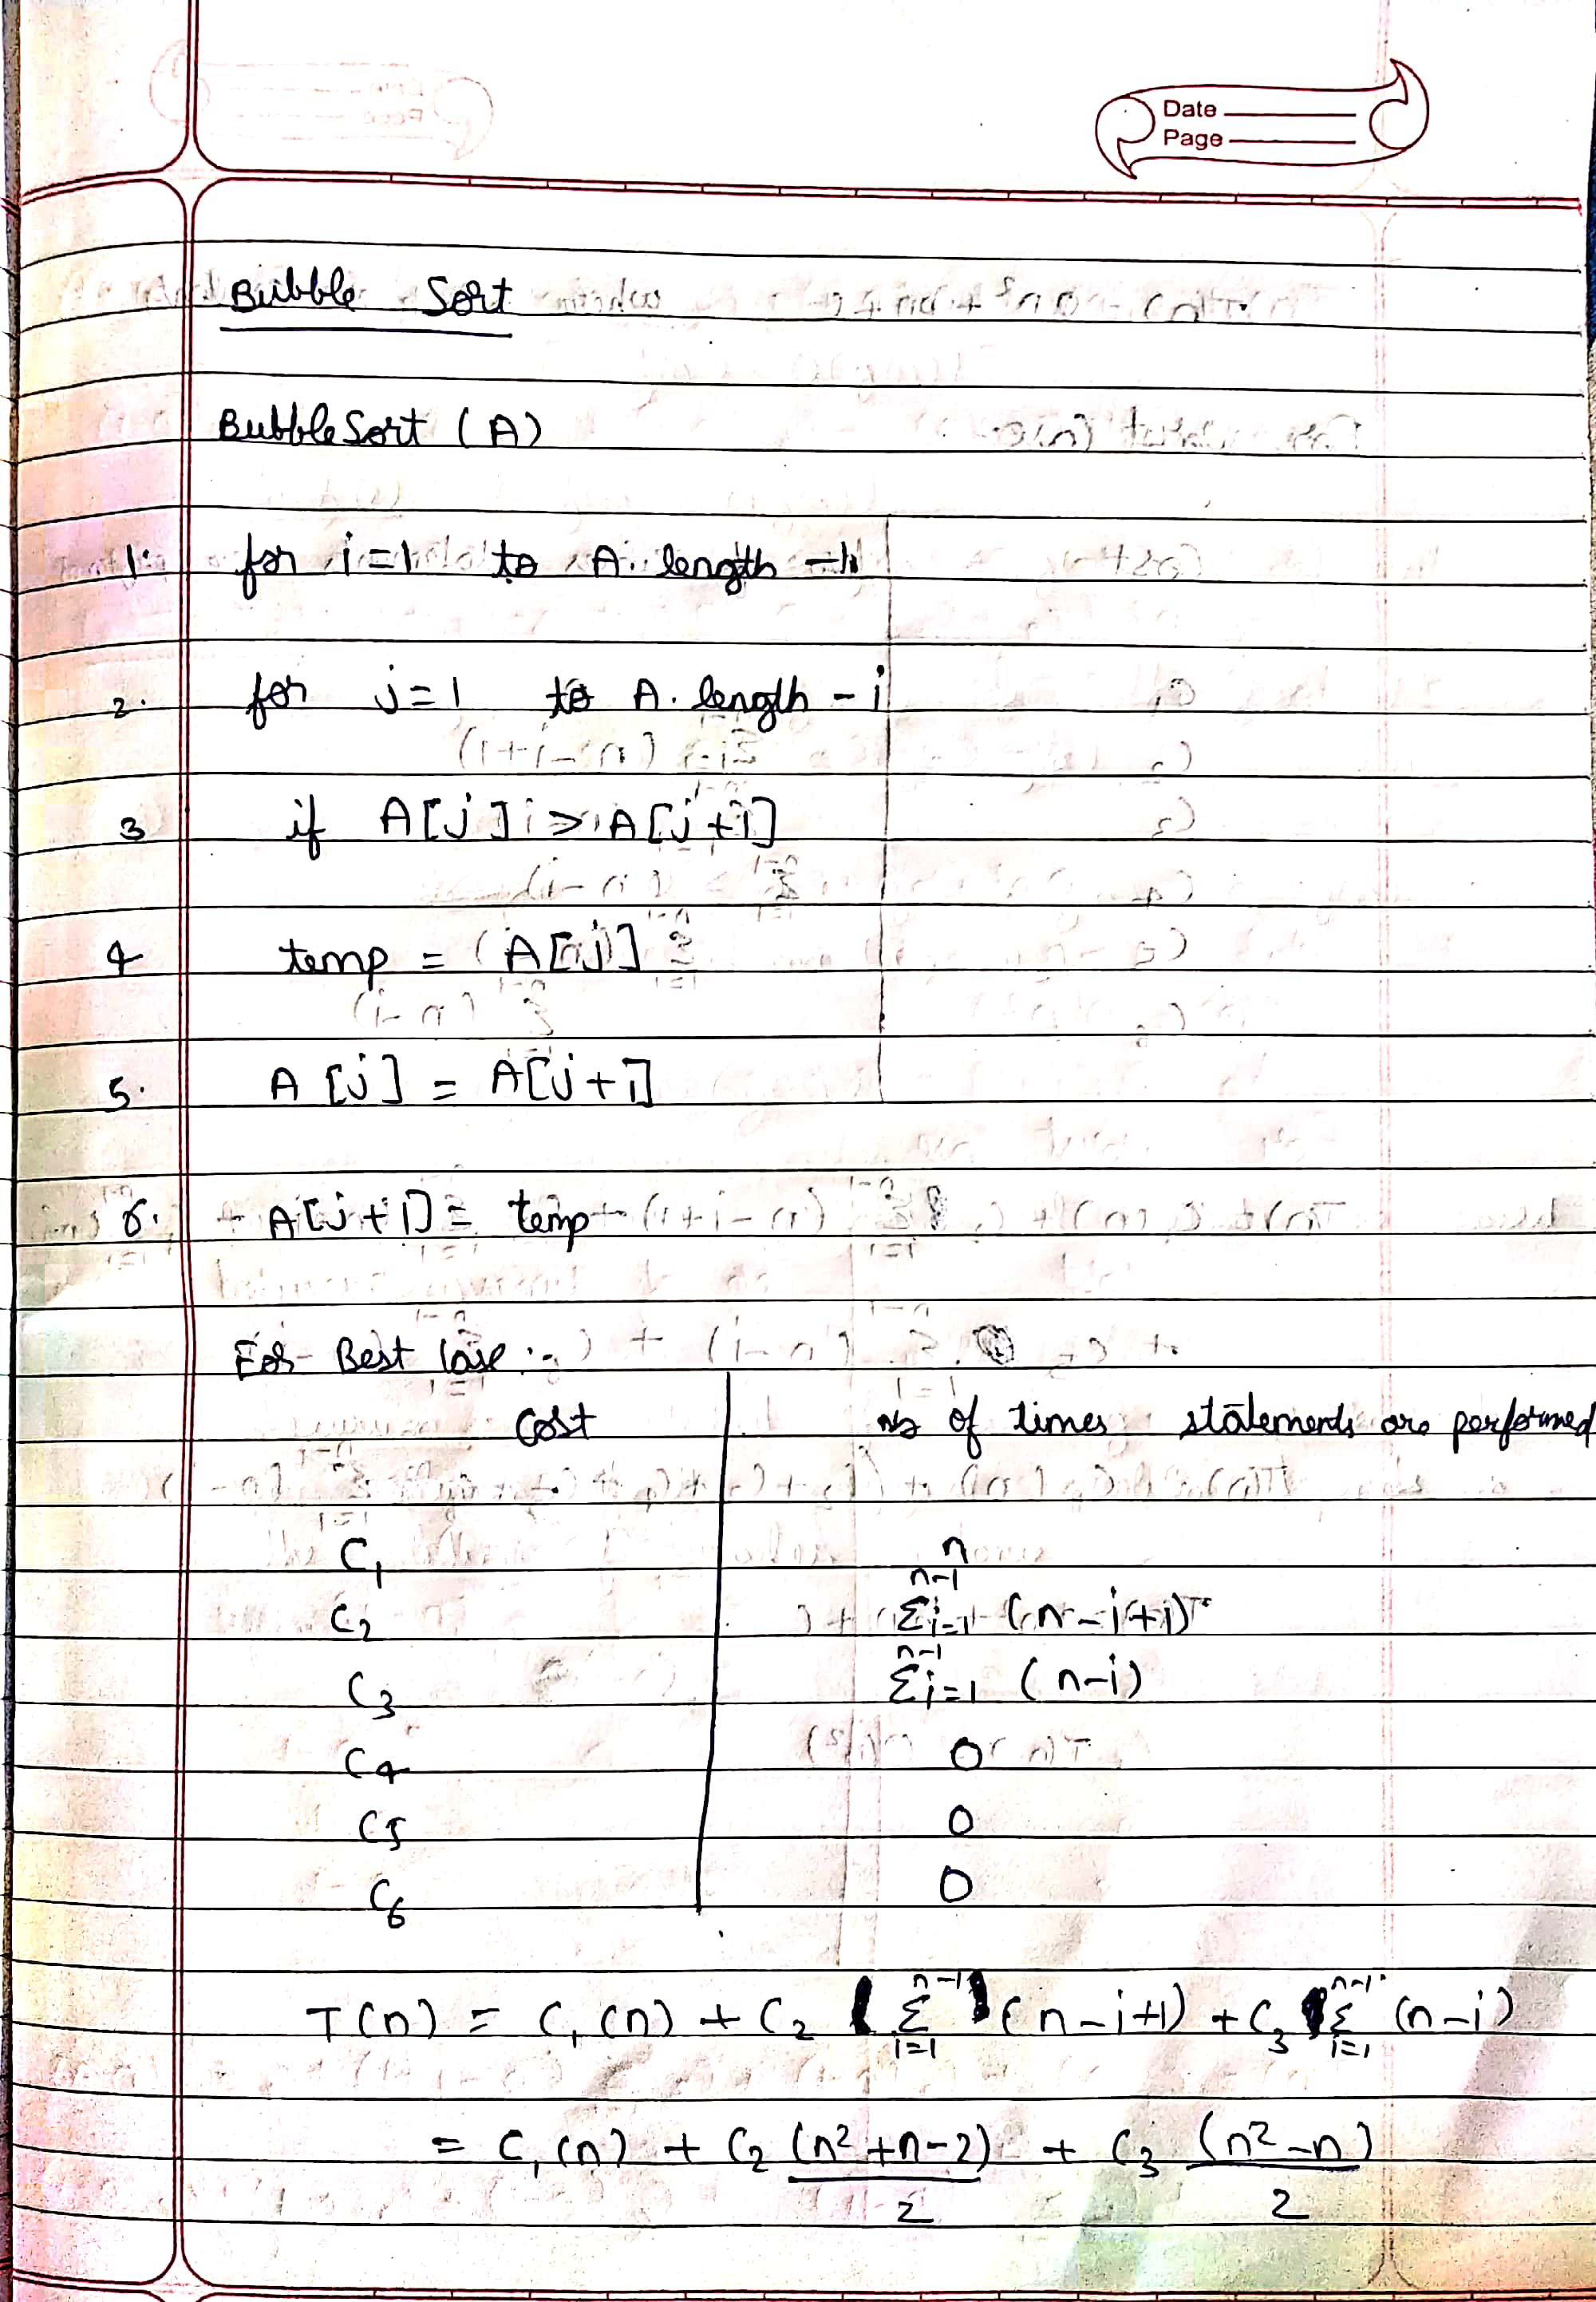 Date
Page
Bubble Sort
BubbleSort (A)
1. for i=1 to A. length -1
2. for j=1 to A. length - i
3 if A[j] > A[j+1]
4 temp = A[j]
5. A[j] = A[j+1]
6. A[j+1] = temp
For Best Case :-
Cost no of times statements are performed
C1 n
C2 Σ i=1 n-1 (n-i+1)
C3 Σ i=1 n-1 (n-i)
C4 0
C5 0
C6 0
T(n) = C1(n) + C2 Σ i=1 n-1 (n-i+1) + C3 Σ i=1 n-1 (n-i)
= C1(n) + C2 (n²+n-2)/2 + C3 (n²-n)/2